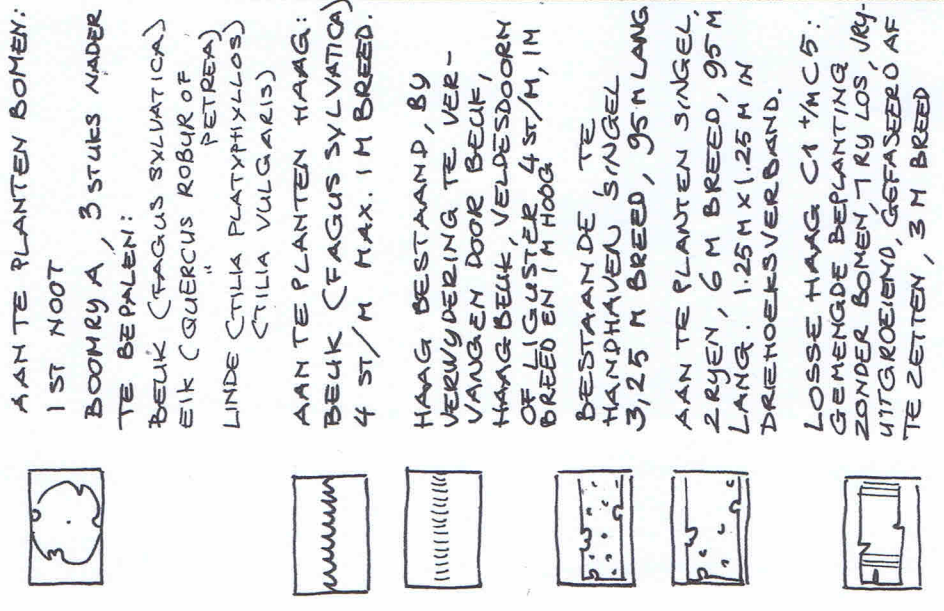 AAN TE PLANTEN BOMEN:
1 ST NOOT
BOOMRY A, 3 STUKS NADER
TE BEPALEN:
BEUK (FAGUS SYLVATICA)
EIK (QUERCUS ROBUR OF
" PETREA)
LINDE (TILIA PLATYPHYLLOS)
(TILIA VULGARIS)
AAN TE PLANTEN HAAG:
BEUK (FAGUS SYLVATICA)
4 ST/M MAX. 1 M BREED.
HAAG BESTAAND, BY
VERWYDERING TE VER-
VANGEN DOOR BEUK,
HAAGBEUK, VELDESDOORN
OF LIGUSTER, 4 ST/M, 1M
BREED EN 1 M HOOG
BESTAANDE TE
HANDHAVEN SINGEL
3,25 M BREED, 95 M LANG
AAN TE PLANTEN SINGEL,
2 RYEN, 6 M BREED, 95 M
LANG. 1.25 M X 1.25 M IN
DRIEHOEKSVERBAND.
LOSSE HAAG C1 +/M C5:
GEMENGDE BEPLANTING
ZONDER BOMEN, 1 RY LOS, VRY-
UITGROEIEND, GEFASEERD AF
TE ZETTEN, 3 M BREED